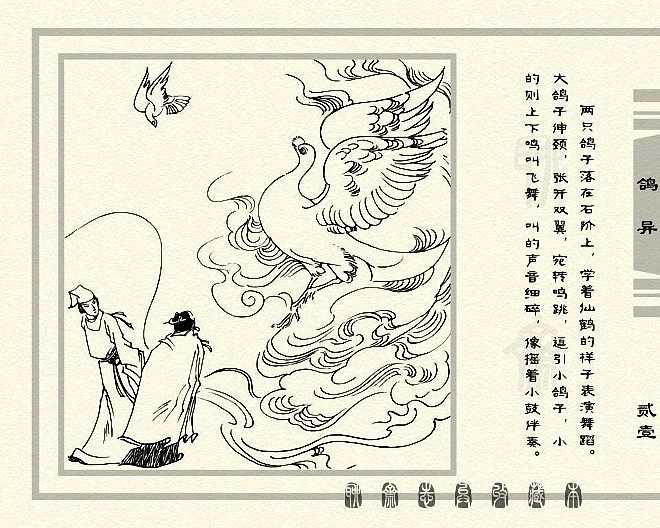 两只鸽子落在石阶上，学着仙鹤的样子表演舞蹈。
大鸽子伸颈，张开双翼，宛转鸣跳，逗引小鸽子，小
的则上下鸣叫飞舞，叫的声音细碎，像摇着小鼓伴奏。
鸽异
贰壹